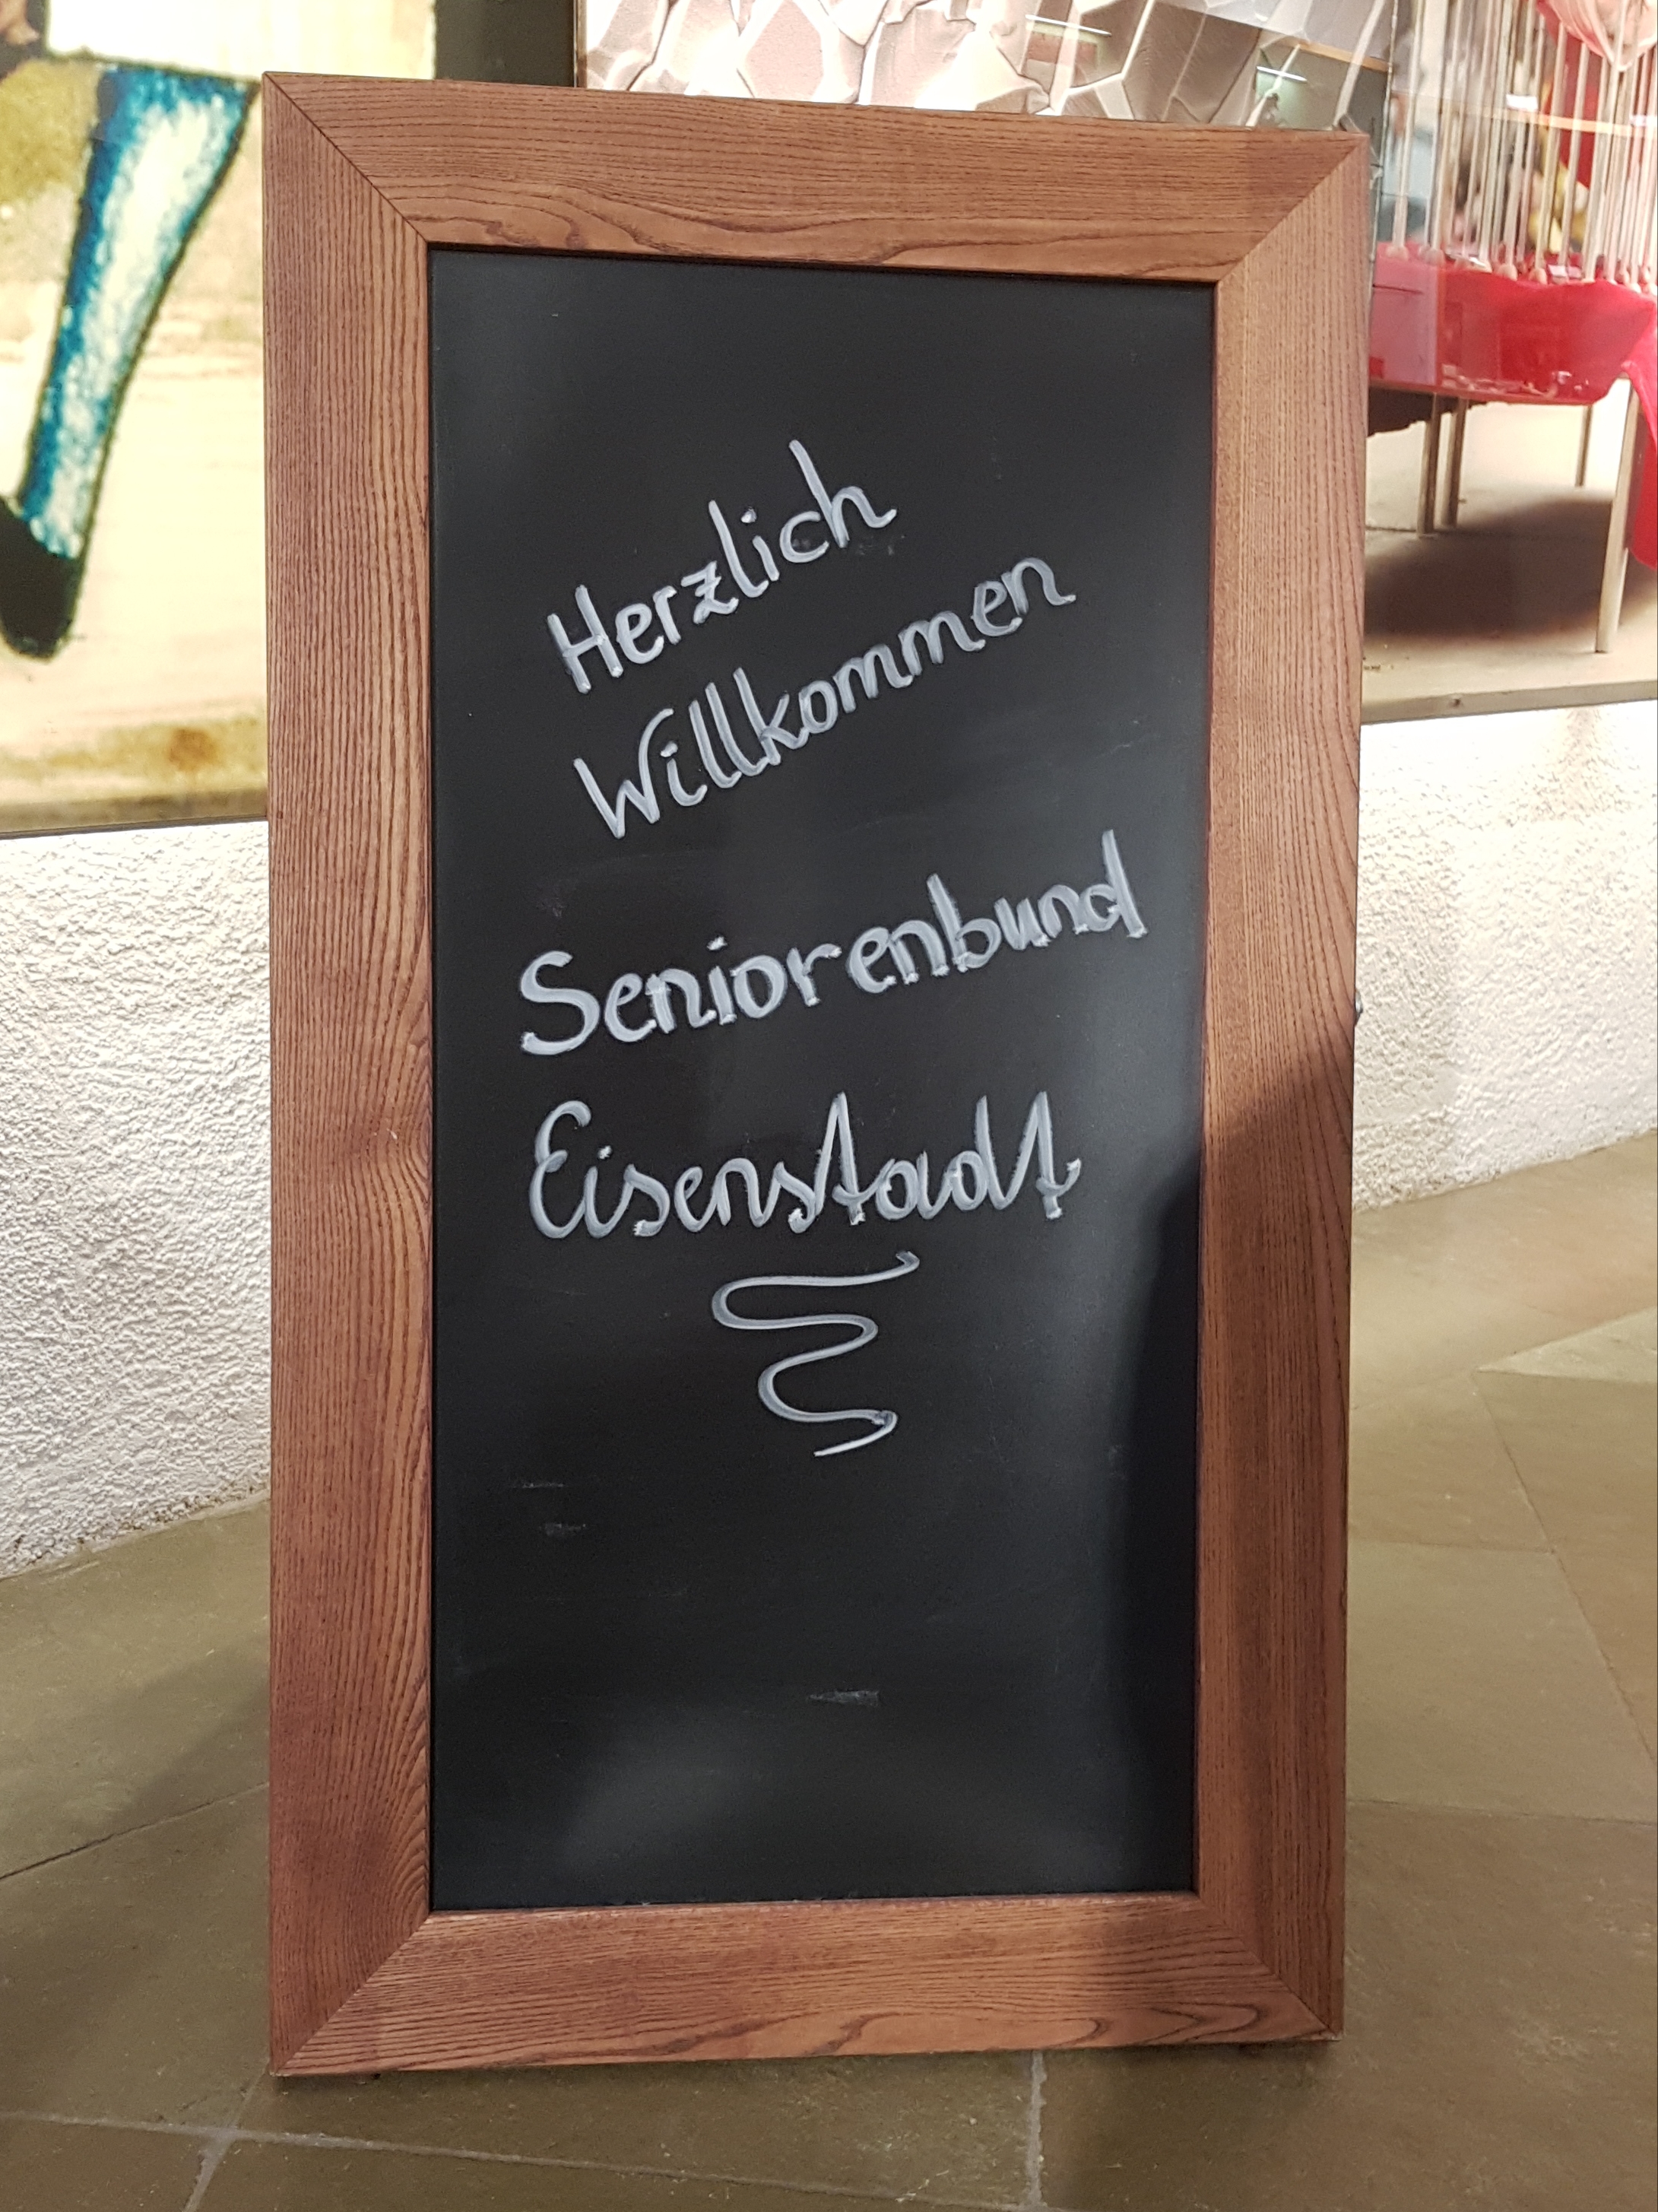 Herzlich
Willkommen
Seniorenbund
Eisenstadt